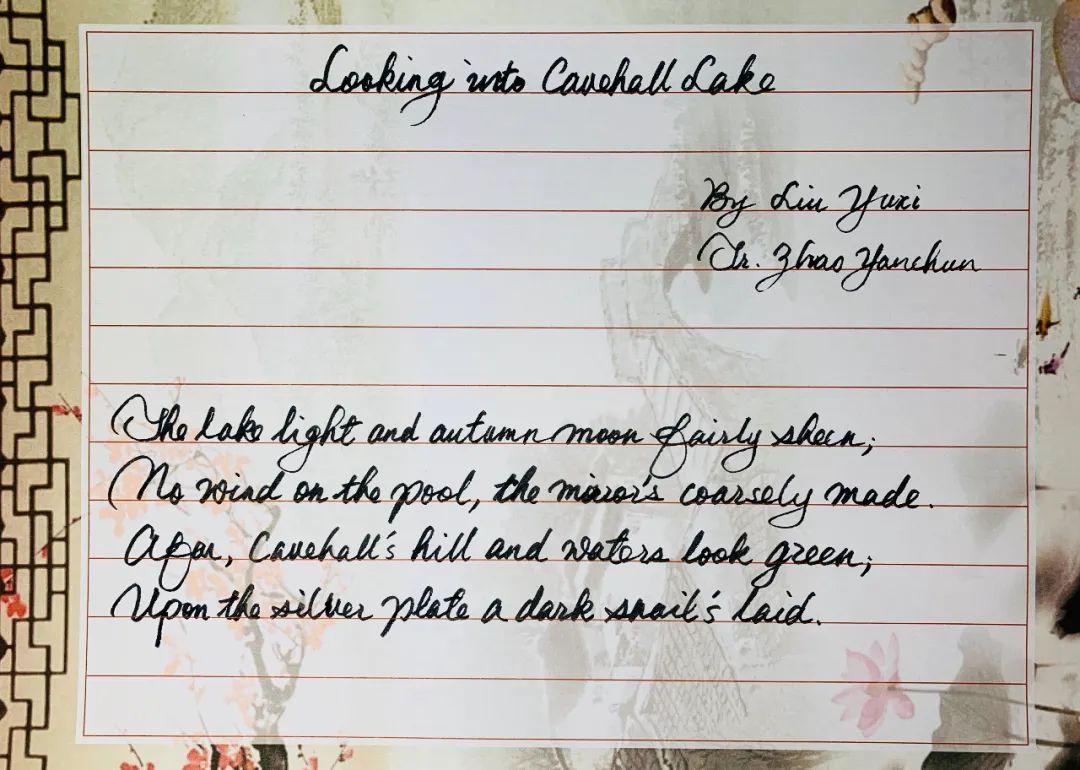 Looking into Cavehall Lake
By Liu Yuxi
Tr. Zhao Yanchun
The lake light and autumn moon fairly sheen;
No wind on the pool, the mirror's coarsely made.
Afar, Cavehall's hill and waters look green;
Upon the silver plate a dark snail's laid.